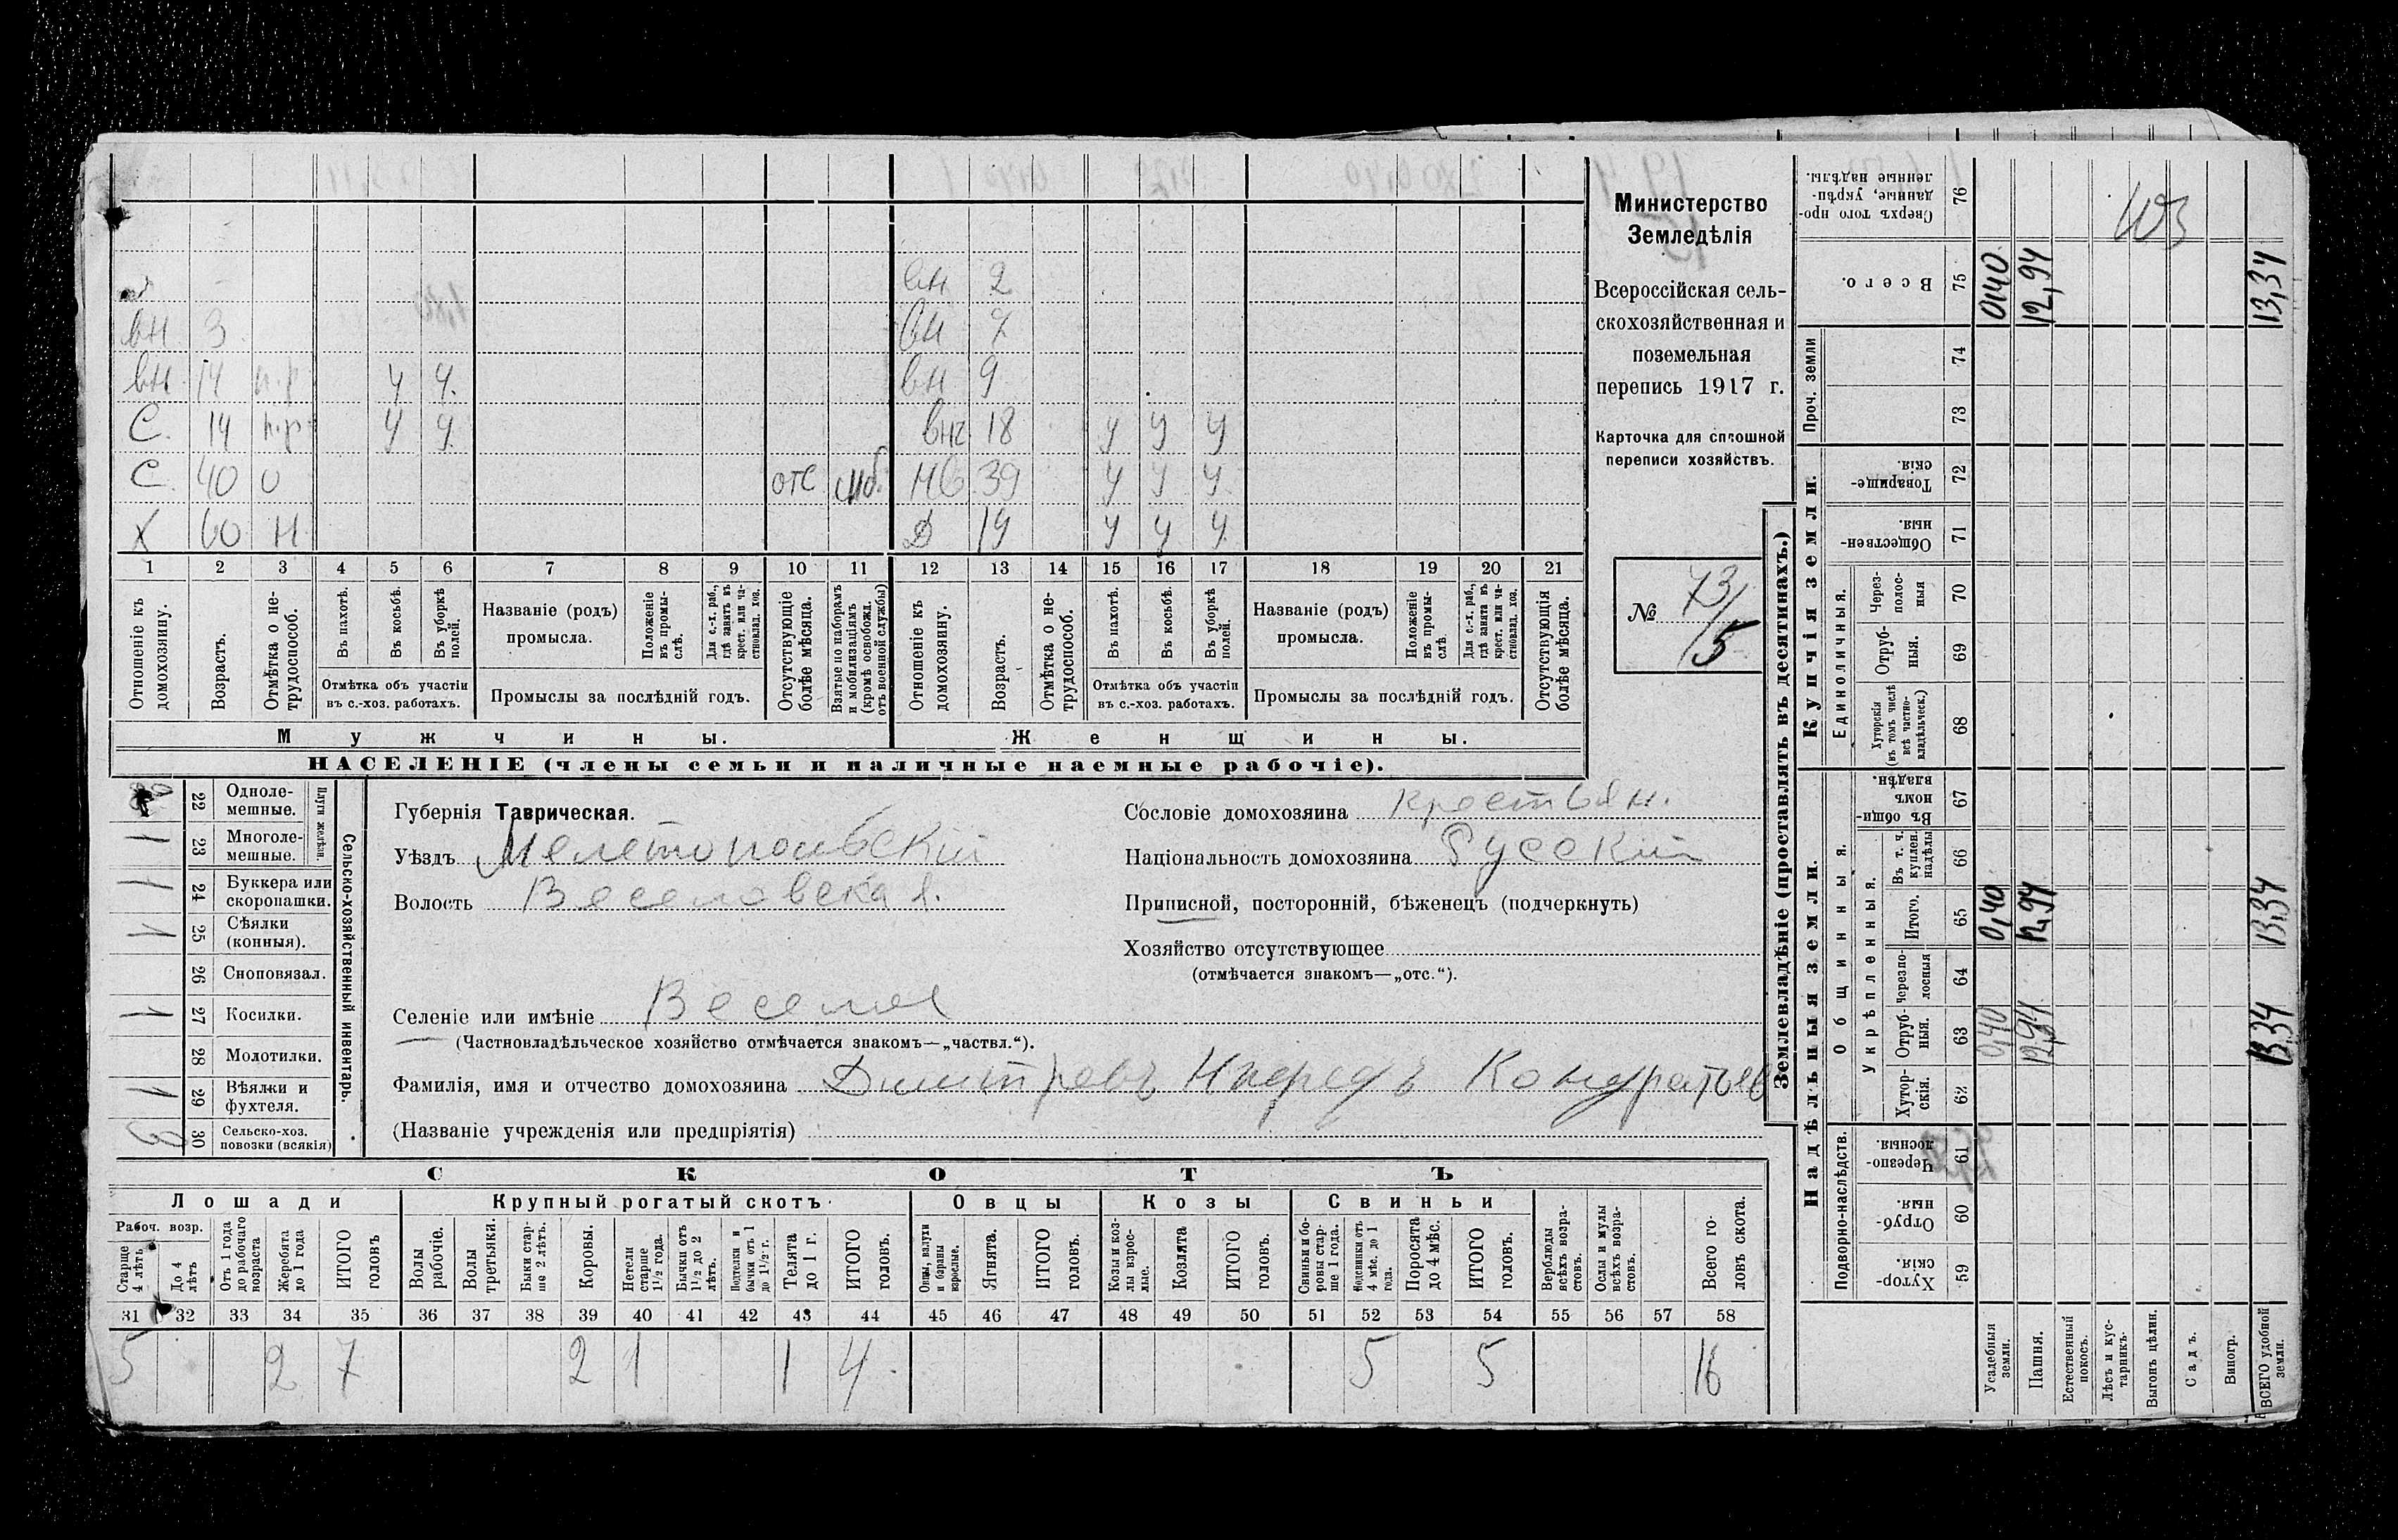 вн 2
вн 3 вн 7
вн 14 н.р у у. вн 9
С. 14 н.р. у у. внч 18 у у у
С. 40 О отс моб. нв 39 у у у.
Х 60 Н Д 19 у у у.
1 2 3 4 5 6 7 8 9 10 11 12 13 14 15 16 17 18 19 20 21
Отношеніе къ домохозяину.
Возрастъ.
Отмѣтка о нетрудоспособ.
Въ пахотѣ.
Въ косьбѣ.
Въ уборкѣ полей.
Отмѣтка объ участіи въ с.-хоз. работахъ.
Названіе (родъ) промысла.
Положеніе въ промыслѣ.
Для с.-х. раб., гдѣ занятъ въ крест. или частновлад. хоз.
Промыслы за послѣдній годъ.
Отсутствующіе болѣе мѣсяца.
Взятые по наборамъ и мобилизаціямъ (кромѣ освобожд. отъ военной службы)
Отношеніе къ домохозяину.
Возрастъ.
Отмѣтка о нетрудоспособ.
Въ пахотѣ.
Въ косьбѣ.
Въ уборкѣ полей.
Отмѣтка объ участіи въ с.-хоз. работахъ.
Названіе (родъ) промысла.
Положеніе въ промыслѣ
Для с.-х. раб., гдѣ занята въ крест. или частновлад. хоз.
Промыслы за послѣдній годъ.
Отсутствующія болѣе мѣсяца.
Мужчины.
Женщины.
НАСЕЛЕНІЕ (члены семьи и наличные наемные рабочіе).
Министерство
Земледѣлія
Всероссійская сель-
скохозяйственная и
поземельная
перепись 1917 г.
Карточка для сплошной
переписи хозяйствъ.
№ 73/
15
22 Одноле-
мешные.
1 23 Многоле-
мешные.
Плуги желѣзн.
1 24 Буккера или
скоропашки.
1 25 Сѣялки
(конныя).
26 Сноповязал.
1 27 Косилки.
28 Молотилки.
1 29 Вѣялки и
фухтеля.
30 Сельско-хоз.
повозки (всякія)
Сельско-хозяйственный инвентарь.
Губернія Таврическая.
Уѣздъ Мелетопольскій
Волость Веселовская.
Селеніе или имѣніе Веселое
(Частновладѣльческое хозяйство отмѣчается знакомъ—„частвл.“).
Фамилія, имя и отчество домохозяина Дмитревъ Кондратьев
(Названіе учрежденія или предпріятія)
Сословіе домохозяина Крестьян.
Національность домохозяина Русскій
Приписной, посторонній, бѣженецъ (подчеркнуть)
Хозяйство отсутствующее
(отмѣчается знакомъ—„отс.“).
СКОТЪ
Лошади
Крупный рогатый скотъ
Овцы
Козы
Свиньи
Рабоч. возр.
Старше 4 лѣтъ
До 4 лѣтъ
Отъ 1 года до рабочаго возраста
Жеребята до 1 года
ИТОГО головъ
Волы рабочіе.
Волы третьяки.
Быки старше 2 лѣтъ.
Коровы.
Нетели старше 1½ года.
Бычки отъ 1½ до 2 лѣтъ.
Подтелки и бычки отъ 1 до 1½ г.
Телята до 1 г.
ИТОГО головъ.
Овцы, валухи и бараны взрослые.
Ягнята.
ИТОГО головъ.
Козы и козлы взрослые.
Козлята
ИТОГО головъ.
Свиньи и боровы старше 1 года.
Подсвинки отъ 4 мѣс. до 1 года.
Поросята до 4 мѣс.
ИТОГО головъ.
Верблюды всѣхъ возрастовъ.
Ослы и мулы всѣхъ возрастовъ.
Всего головъ скота.
31 32 33 34 35 36 37 38 39 40 41 42 43 44 45 46 47 48 49 50 51 52 53 54 55 56 57 58
5 2 7 2 1 1 4 5 5 16
Землевладѣніе (проставлять въ десятинахъ.)
Надѣльныя земли.
Купчія земли.
Подворно-наслѣдств.
Общинныя.
Укрѣпленныя.
Единоличныя.
Проч. земли
Сверхъ того проданные, укрѣпленные надѣлы. 76 403
Всего. 75 0,40 12,94 13,34
74
73
Товарищескія. 72
Общественныя. 71
Черезполосныя 70
Отрубныя. 69
Хуторскія (въ томъ числѣ всѣ частновладѣльческ.) 68
Въ общинномъ владѣн. 67
Въ т. ч. куплен. надѣлы 66
Итого. 65 0,40 12,94 13,34
Черезполосныя 64
Отрубныя. 63 0,40 12,94 13,34
Хуторскія. 62
Черезполосныя. 61
Отрубныя. 60
Хуторскія. 59
Усадебныя земли.
Пашня.
Естественный покосъ.
Лѣсъ и кустарникъ.
Выгонъ цѣлин.
Садъ.
Виногр.
ВСЕГО удобной земли.